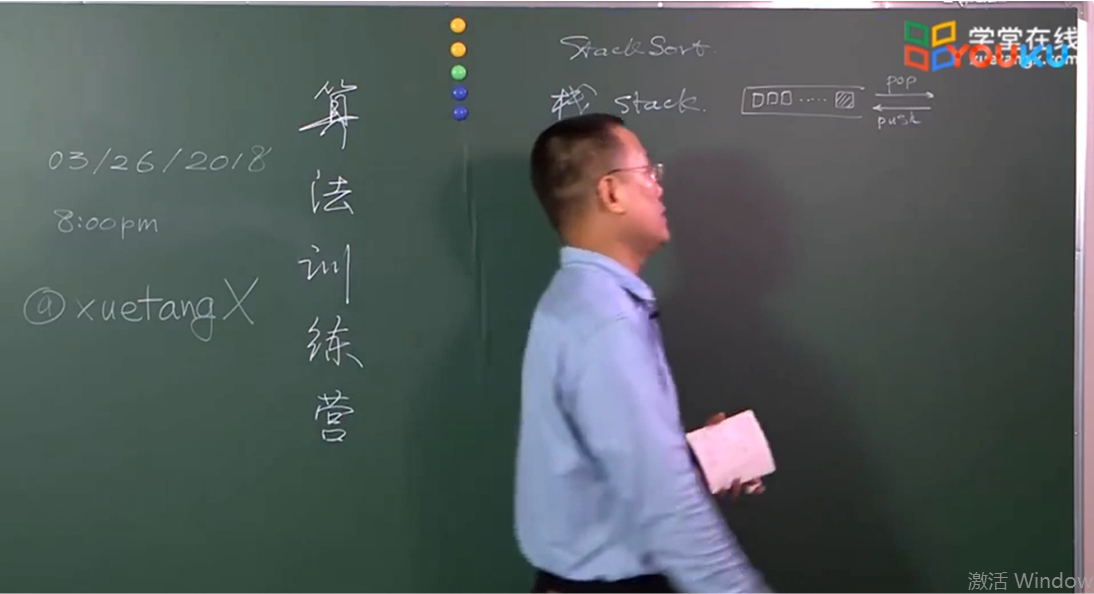 03/26/2018
8:00pm
@xuetangX
算
法
训
练
营
StackSort.
栈 Stack.
pop
push
学堂在线
xuetangx.com
YOUKU
激活 Window